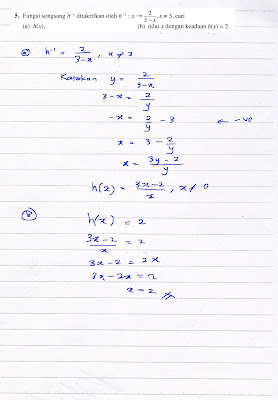 5. Fungsi songsang h⁻¹ ditakrifkan oleh h⁻¹ : x → 2/(3−x), x ≠ 3, cari
(a) h(x), (b) nilai x dengan keadaan h(x) = 2.
(a) h⁻¹ = 2/(3-x) , x ≠ 3
Katakan y = 2/(3-x)
3-x = 2/y
-x = 2/y - 3
x = 3 - 2/y
x = (3y-2)/y
h(x) = (3x-2)/x , x ≠ 0
(b) h(x) = 2
(3x-2)/x = 2
3x-2 = 2x
3x-2x = 2
x = 2